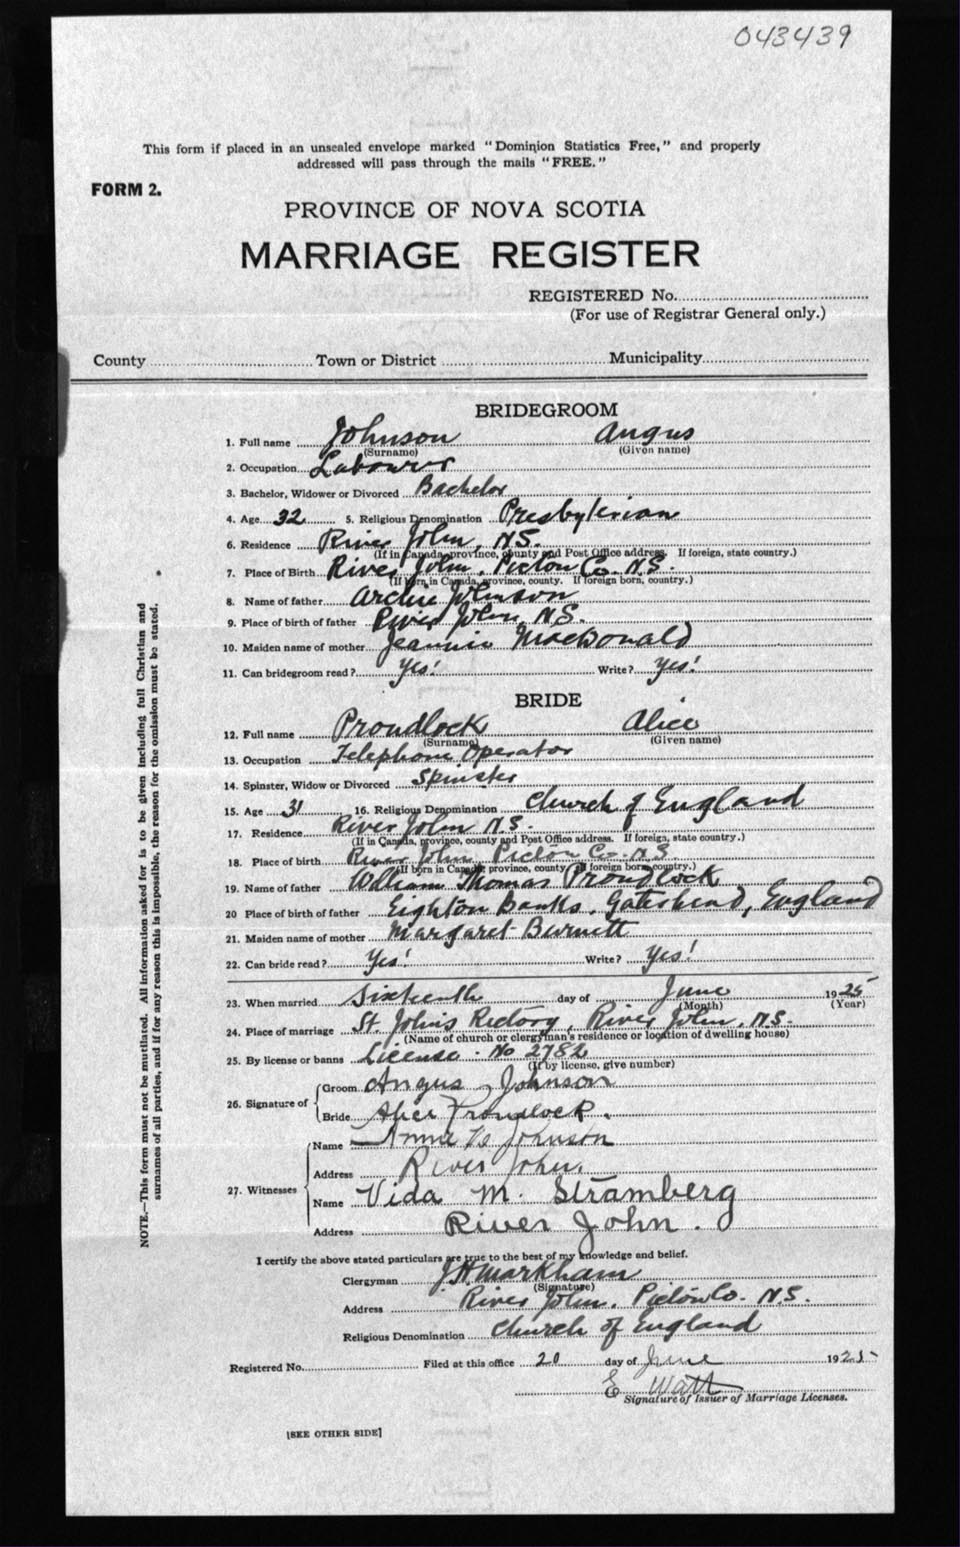 043439
This form if placed in an unsealed envelope marked "Dominion Statistics Free," and properly
addressed will pass through the mails "FREE."
FORM 2.
PROVINCE OF NOVA SCOTIA
MARRIAGE REGISTER
REGISTERED No.
(For use of Registrar General only.)
County Town or District Municipality
BRIDEGROOM
1. Full name Johnson Angus
(Surname) (Given name)
2. Occupation Labourer
3. Bachelor, Widower or Divorced Bachelor
4. Age 32 5. Religious Denomination Presbyterian
6. Residence River John, N.S.
(If in Canada, province, county and Post Office address. If foreign, state country.)
7. Place of Birth River John, Pictou Co. N.S.
(If born in Canada, province, county. If foreign born, country.)
8. Name of father Archie Johnson
9. Place of birth of father River John, N.S.
10. Maiden name of mother Jeannie MacDonald
11. Can bridegroom read? Yes! Write? Yes!
BRIDE
12. Full name Proudlock Alice
(Surname) (Given name)
13. Occupation Telephone Operator
14. Spinster, Widow or Divorced Spinster
15. Age 31 16. Religious Denomination Church of England
17. Residence River John N.S.
(If in Canada, province, county and Post Office address. If foreign, state country.)
18. Place of birth River John, Pictou Co. N.S.
(If born in Canada; province, county. If foreign born, country.)
19. Name of father William Thomas Proudlock
20 Place of birth of father Eighton Banks, Gateshead, England
21. Maiden name of mother Margaret Burnett
22. Can bride read? Yes! Write? Yes!
23. When married Sixteenth day of June 1925
(Month) (Year)
24. Place of marriage St. John's Rectory, River John, N.S.
(Name of church or clergyman's residence or location of dwelling house)
25. By license or banns License. No 2782
(If by license, give number)
26. Signature of Groom Angus Johnson
Bride Alice Proudlock.
27. Witnesses
Name Annie Johnson
Address River John.
Name Vida M. Stramberg
Address River John.
I certify the above stated particulars are true to the best of my knowledge and belief.
Clergyman J.H. Markham
(Signature)
Address River John, Pictou Co. N.S.
Religious Denomination Church of England
Registered No. Filed at this office 20 day of June 1925
E Watt
Signature of Issuer of Marriage Licenses.
[SEE OTHER SIDE]
NOTE.—This form must not be mutilated. All information asked for is to be given including full Christian and
surnames of all parties, and if for any reason this is impossible, the reason for the omission must be stated.